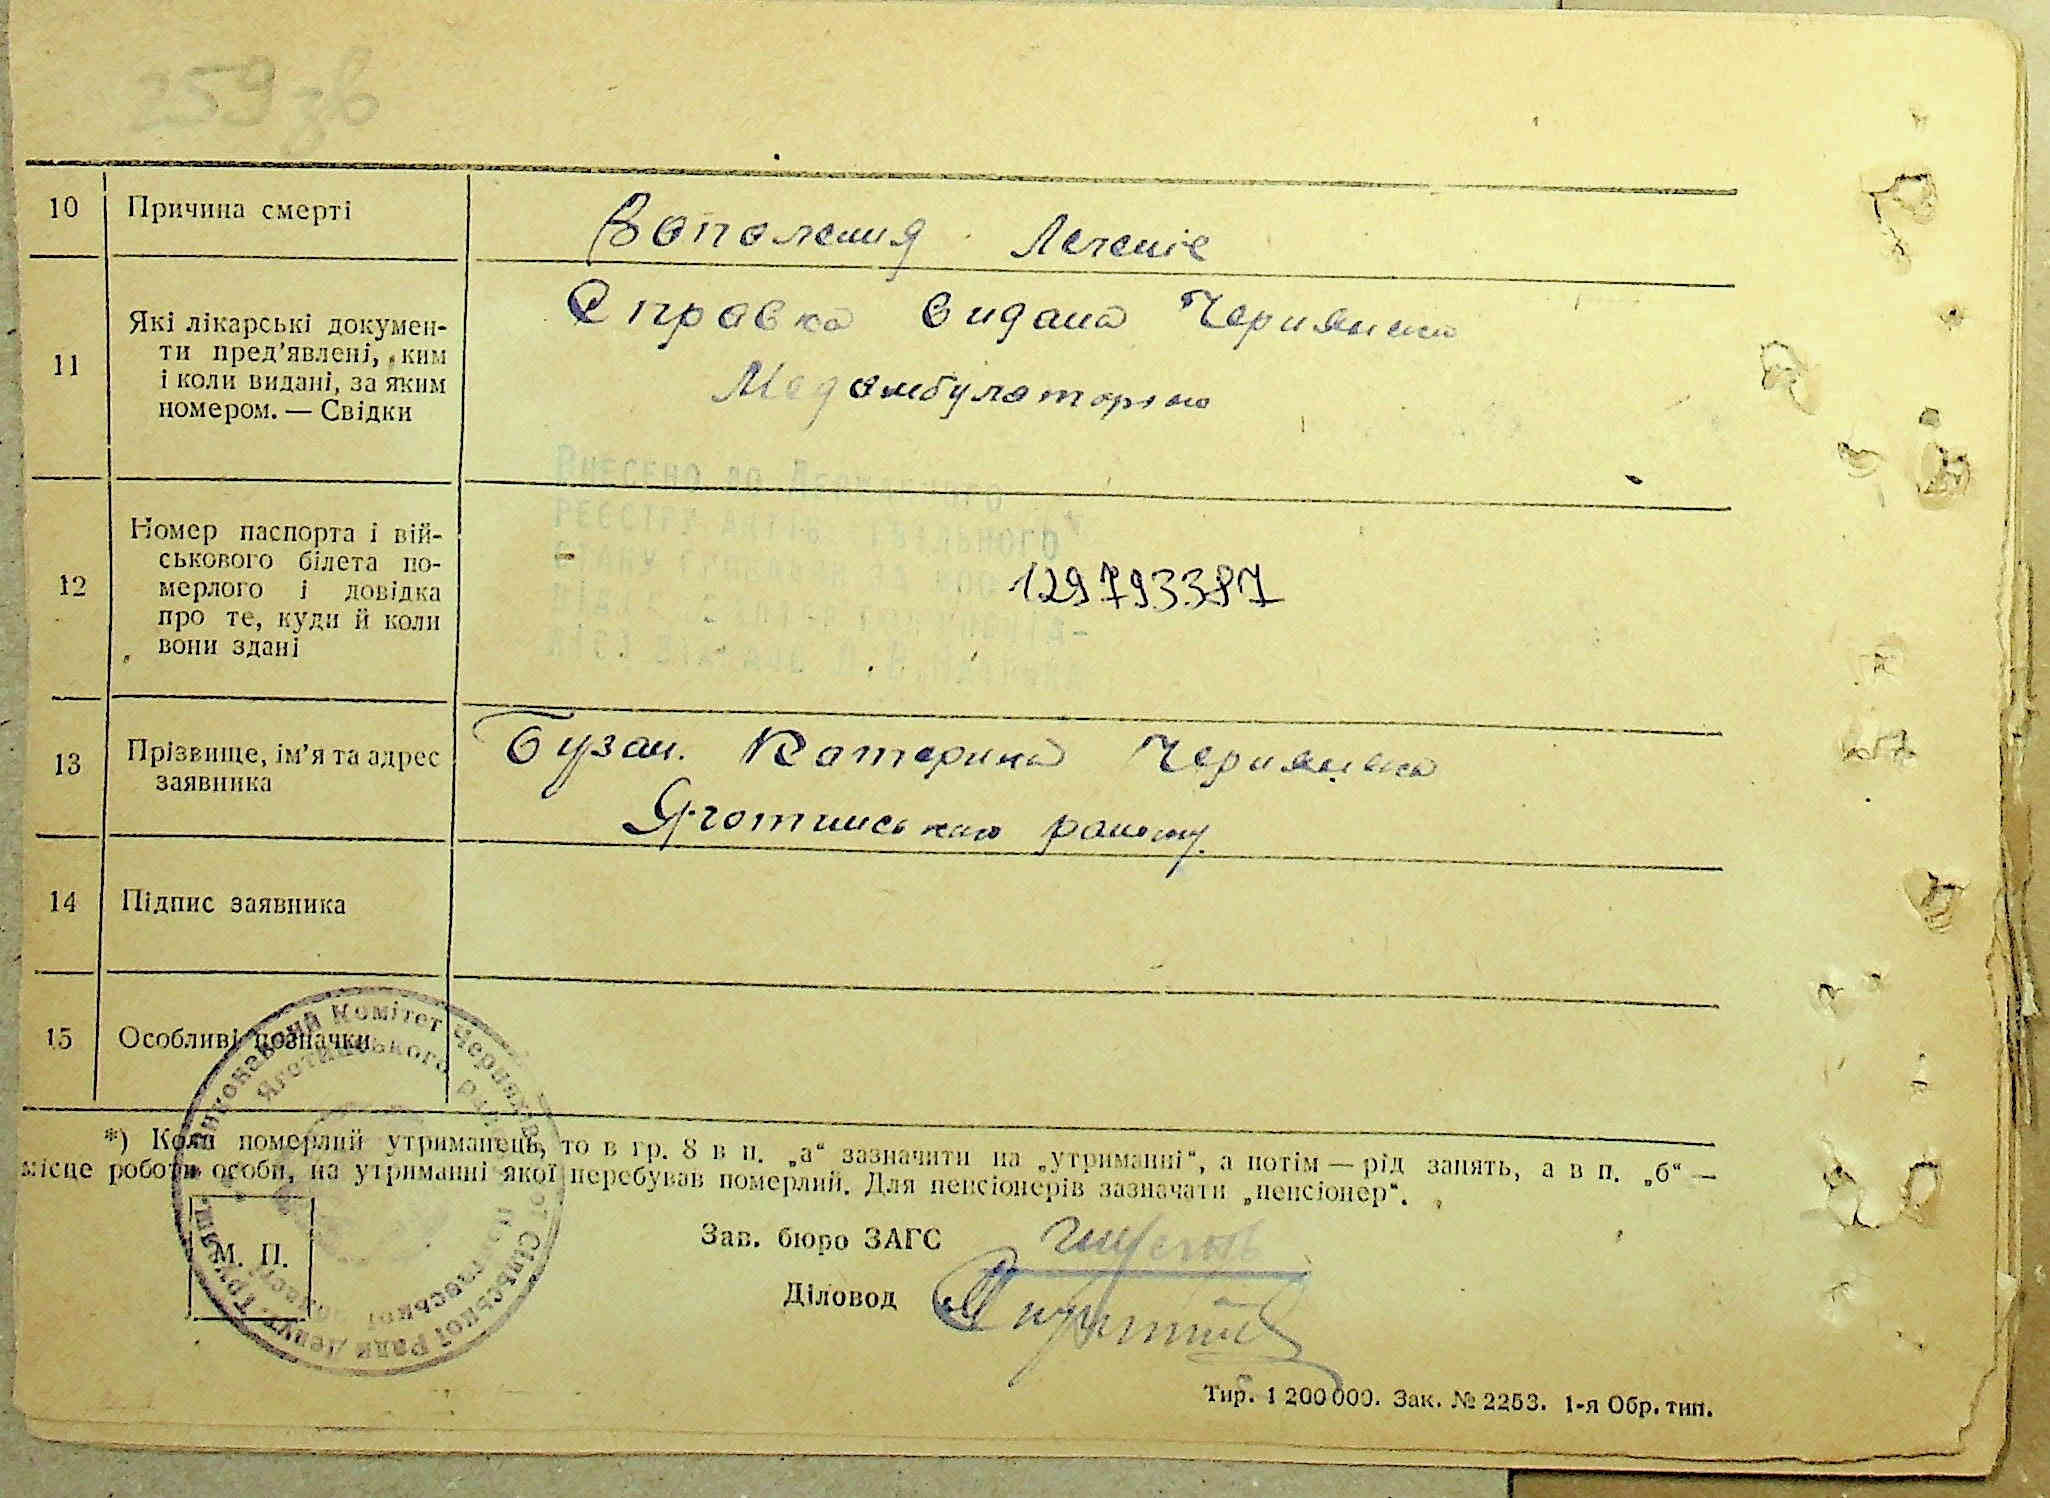 259 зв
10 Причина смерті
Вополения Легеніе
11 Які лікарські докумен-
ти пред’явлені, ким
і коли видані, за яким
номером. — Свідки
Справка видана Черняхівс
Медамбулаторією
Внесено до Державного
реєстру актів цивільного
стану громадян
12 Номер паспорта і вій-
ськового білета по-
мерлого і довідка
про те, куди й коли
вони здані
129793387
13 Прізвище, ім’я та адрес
заявника
Бузан. Катерина
Яготинського району
14 Підпис заявника
15 Особливі позначки
Виконавчий Комітет Сільської Ради Депут. Трудящ.
Яготинського району Полтавської області
*) Коли померлий утриманець, то в гр. 8 в п. „а“ зазначити на „утриманні“, а потім — рід занять, а в п. „б“ —
місце роботи особи, на утриманні якої перебував померлий. Для пенсіонерів зазначати „пенсіонер“.
М. П.
Зав. бюро ЗАГС
Діловод
Тир. 1 200 000. Зак. № 2253. 1-я Обр. тип.